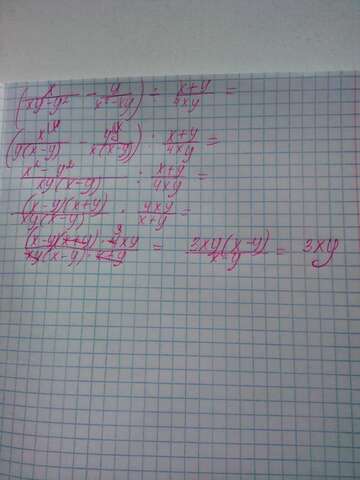 (x/(xy-y²) - y/(x²-xy)) : (x+y)/(4xy) =
(x^(x)/(y(x-y)) - y^(x)/(x(x-y))) : (x+y)/(4xy) =
(x²-y²)/(xy(x-y)) : (x+y)/(4xy) =
((x-y)(x+y))/(xy(x-y)) · (4xy)/(x+y) =
((x-y)(x+y)·4xy)/(xy(x-y)·x+y) = (3xy(x-y))/(x-y) = 3xy